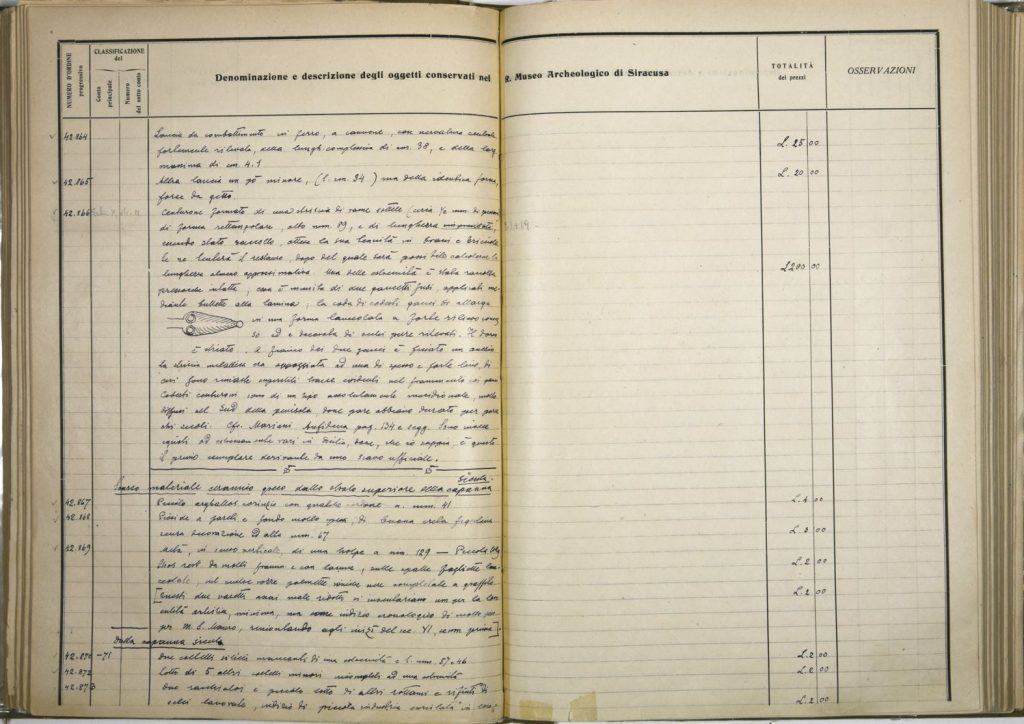 NUMERO D'ORDINE progressivo
CLASSIFICAZIONE del
Conto principale
Numero del sotto conto
Denominazione e descrizione degli oggetti conservati nel R. Museo Archeologico di Siracusa
TOTALITÀ dei prezzi
OSSERVAZIONI
42.864 Lancia da combattimento in ferro, a cannone, con nervatura centrale
fortemente rilevata, della lungh. complessiva di cm. 38, e della larg.
massima di cm. 4.1 L. 25 00
42.865 Altra lancia un pò minore, (l. cm. 34) ma della identica forma,
forse da getto. L. 20 00
42.866 Centurone formato di una striscia di rame sottile (circa ½ mm. di
di forma rettangolare, alto mm. 89, e di lunghezza
essendo stato raccolto, attesa la sua tenuità in brani e briciole
se ne tenterà il restauro, dopo del quale sarà possibile calcolarne la
lunghezza almeno approssimativa. Una delle estremità è stata raccolta
pressochè intatta; essa è munita di due gancetti fusi, applicati me-
diante bullette alla lamina; la coda di codesti ganci si allarga L 200 00
in una forma lanceolata a forte rilievo
so ed è decorata di pure rilevati. Il
È striato. A fianco dei due ganci è fissato un anello
La striscia metallica era appoggiata ad una di spesso e forte lino, di
cui sono rimaste superstiti tracce evidenti nel frammento coi ganci
Codesti centuroni sono di un tipo assolutamente meridionale, molto
diffusi nel Sud della penisola, dove pare abbiano durato per
chi secoli. Cfr. Mariani Aufidena pag. 134 e segg. Sono invece
estremamente rari in Sicilia, dove, che io sappia, è questo
il primo esemplare derivante da uno scavo ufficiale.
Scarso materiale ceramico greco dallo strato superiore della capanna sicula.
42.867 Piccolo aryballos corinzio con a. mm. 41 L. 4 00
42.868 Pisside a pareti e fondo molto di buona creta figulina
senza decorazione ed alta mm. 67 L. 3 00
42.869 metà, in senso verticale, di una holpe a mm. 129 — Piccola
rest. da molti framm. e con lacune, sulle spalle fogliette lan-
ceolate, L. 2 00
Questi due vasetti assai male ridotti si per la loro
entità artistica, minima, ma come indizio cronologico di molto L. 2 00
per M. S. Mauro, rimontando agli inizi del sec. VI, come prima].
Dalla capanna sicula
42.870 - 71 due coltelli silicei mancanti di una estremità e l. mm. 57 e 46 L. 2 00
42.872 Lotto di 5 altri coltelli minori incompleti ad una estremità L. 2 00
42.873 due raschiatoi e piccolo lotto di altri rottami e rifiuti di
selci lavorate, indizio di piccola industria L. 2 00